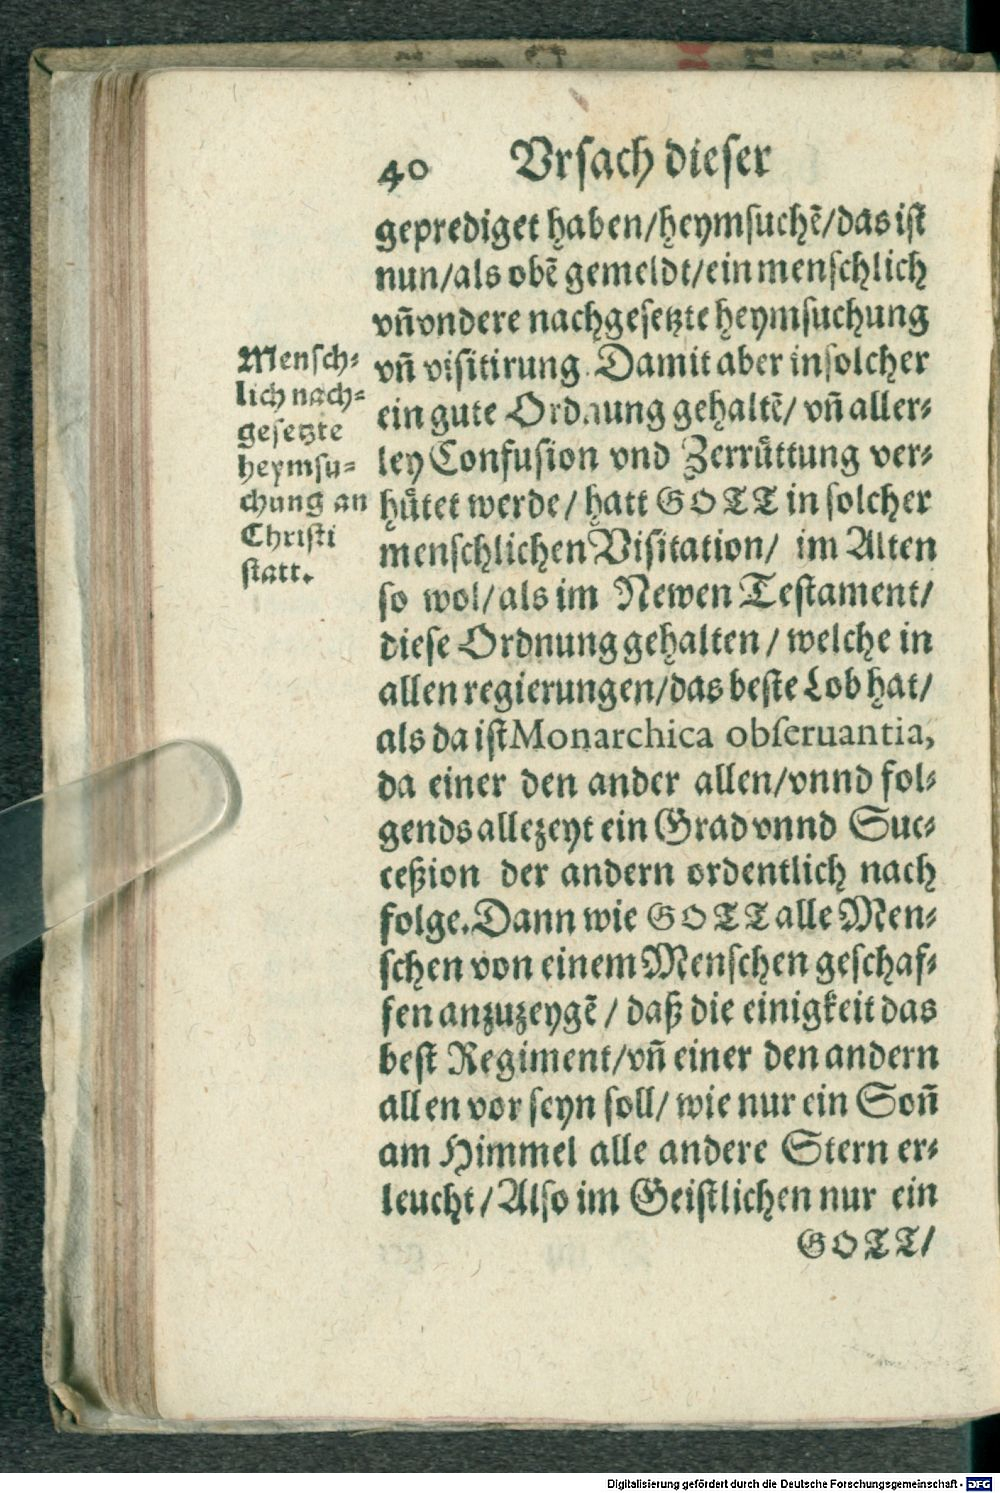 40 Vrſach dieſer
geprediget haben/heymſuchẽ/das iſt
nun/als obẽ gemeldt/ein menſchlich
vñ vndere nachgeſetzte heymſuchung
vñ viſitirung. Damit aber in ſolcher
ein gute Ordnung gehaltẽ/ vñ aller⸗
ley Confuſion vnd Zerrůttung ver⸗
hůtet werde/ hatt GOTT in ſolcher
menſchlichen Viſitation/ im Alten
ſo wol/als im Newen Teſtament/
dieſe Ordnung gehalten / welche in
allen regierungen/das beſte Lob hat/
als da iſt Monarchica obſeruantia,
da einer den ander allen/vnnd fol⸗
gends allezeyt ein Grad vnnd Suc⸗
ceßion der andern ordentlich nach
folge. Dann wie GOTT alle Men⸗
ſchen von einem Menſchen geſchaf⸗
fen anzuzeygẽ / daß die einigkeit das
beſt Regiment/vñ einer den andern
allen vor ſeyn ſoll/ wie nur ein Soñ
am Himmel alle andere Stern er⸗
leucht/Alſo im Geiſtlichen nur ein
GOTT/
Menſch⸗
lich nach⸗
geſetzte
heymſu⸗
chung an
Chriſti
ſtatt.
Digitalisierung gefördert durch die Deutsche Forschungsgemeinschaft - DFG